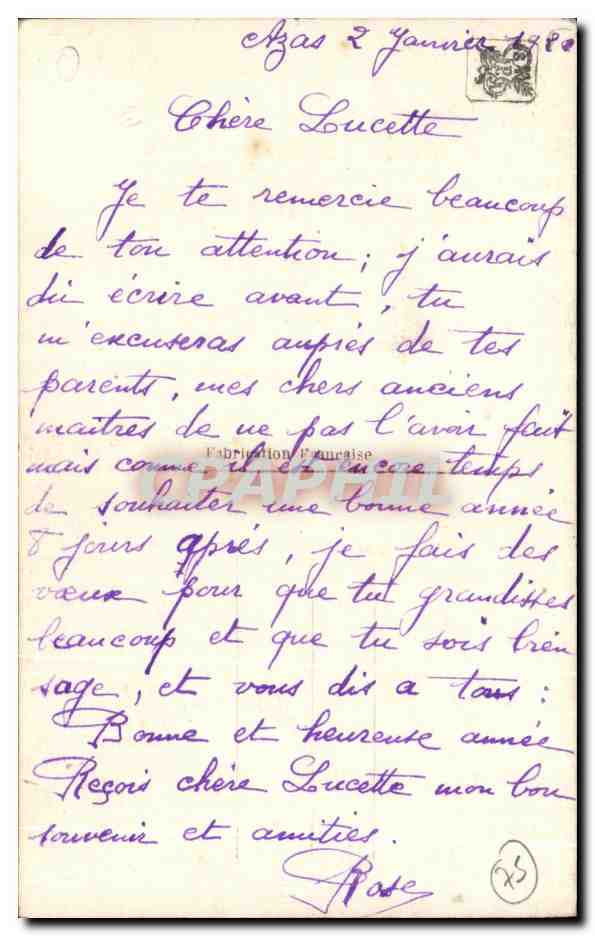 Azas 2 Janvier
Chère Lucette
Je te remercie beaucoup
de ton attention, j'aurais
dû écrire avant, tu
m'excuseras auprès de tes
parents, mes chers anciens
maîtres de ne pas l'avoir fait
Fabrication Française
mais comme il est encore temps
CPAPHIL
de souhaiter une bonne année
8 jours après, je fais des
vœux pour que tu grandisses
beaucoup et que tu sois bien
sage, et vous dis a tous :
Bonne et heureuse année
Reçois chère Lucette mon bon
souvenir et amitiés.
Rose